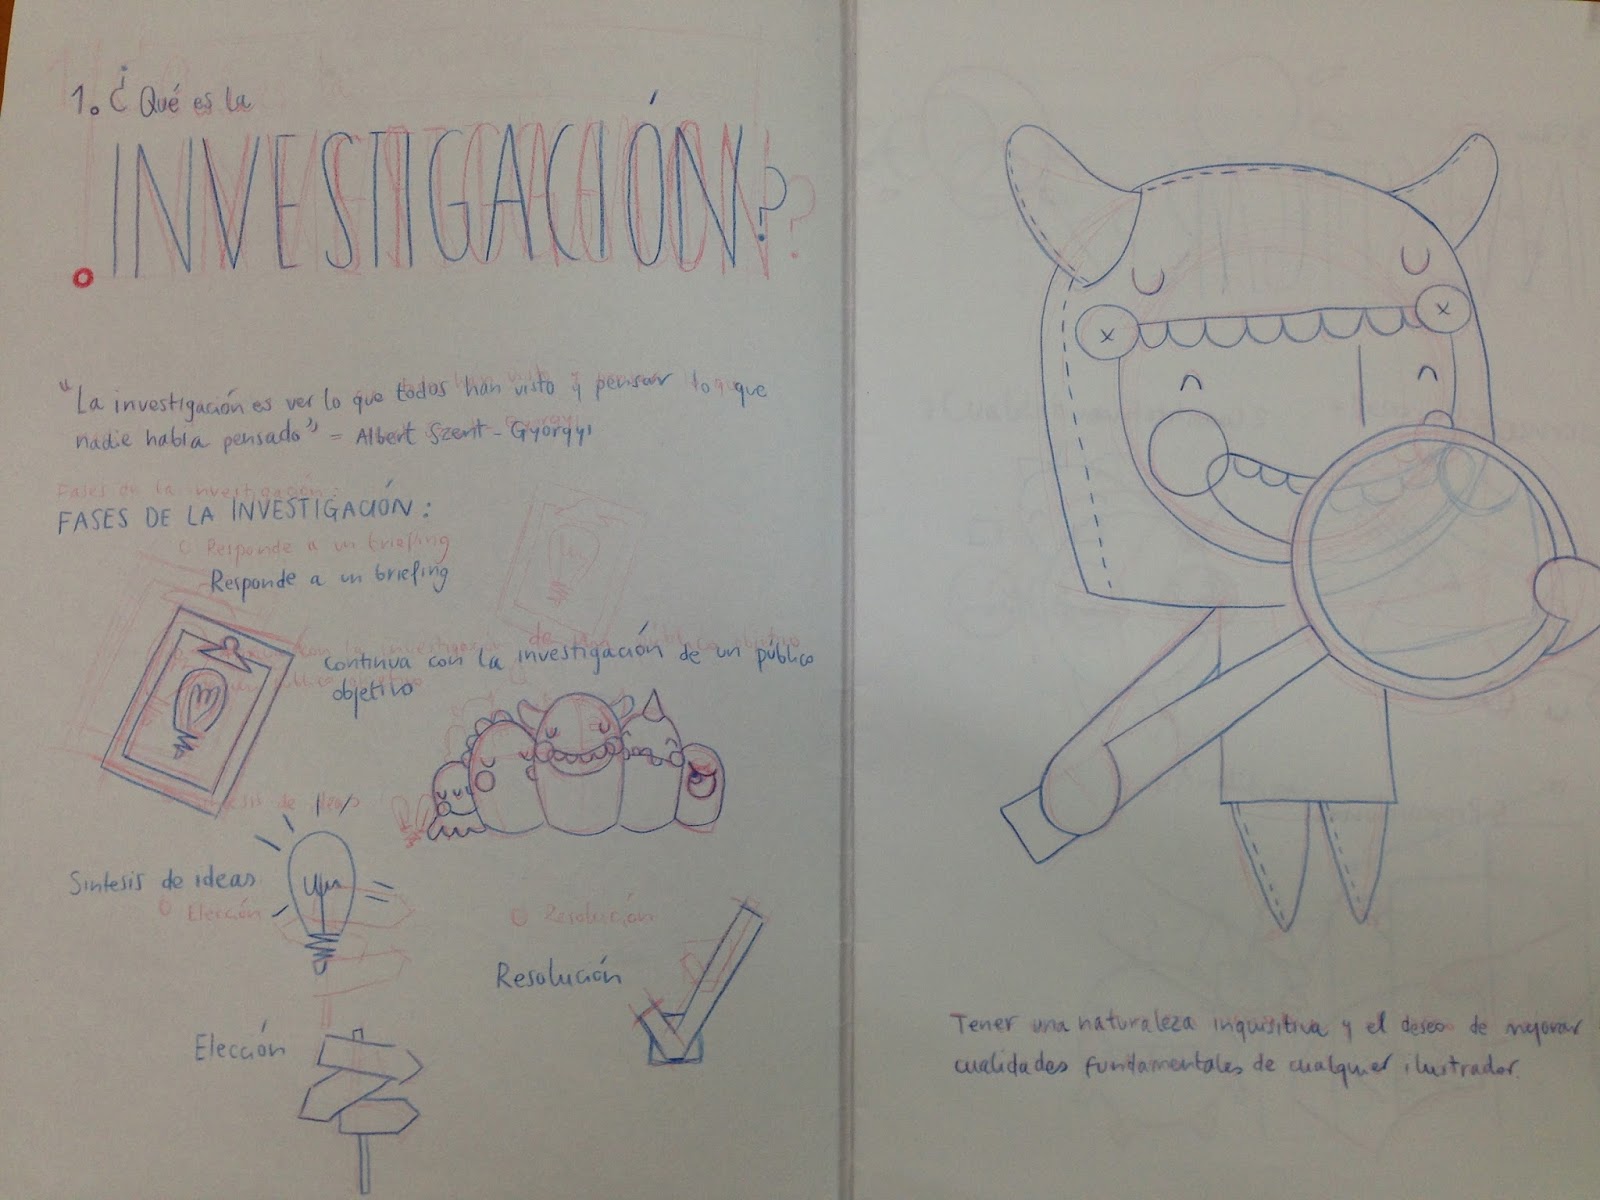 1. ¿Qué es la
INVESTIGACIÓN?
"La investigación es ver lo que todos han visto y pensar lo que
nadie había pensado" = Albert Szent-Gyorgyi
Fases de la investigación:
FASES DE LA INVESTIGACIÓN:
Responde a un briefing
Responde a un briefing
continua con la investigación de un público
objetivo
Síntesis de ideas
Elección
Resolución
Resolución
Elección
Tener una naturaleza inquisitiva y el deseo de mejorar
cualidades fundamentales de cualquier ilustrador.